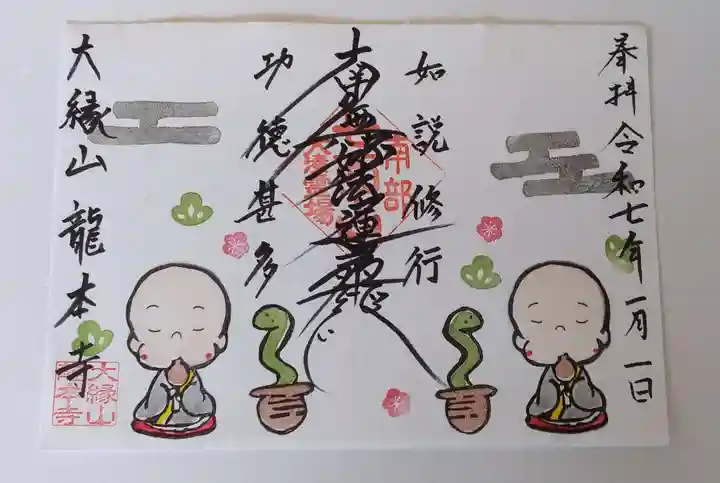 奉拝 令和七年一月一日
如説修行
南無妙法蓮華経
功徳甚多
大縁山 龍本寺
南部
大縁山
龍本寺